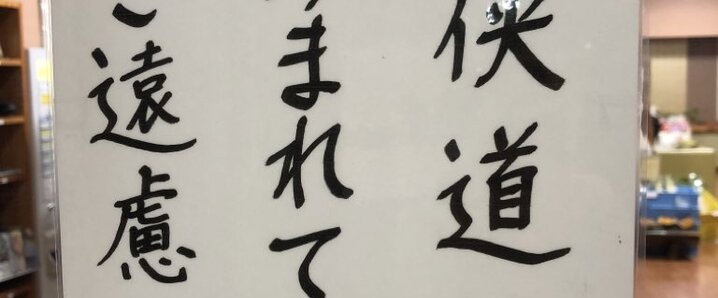 侠道
まれて
ご遠慮